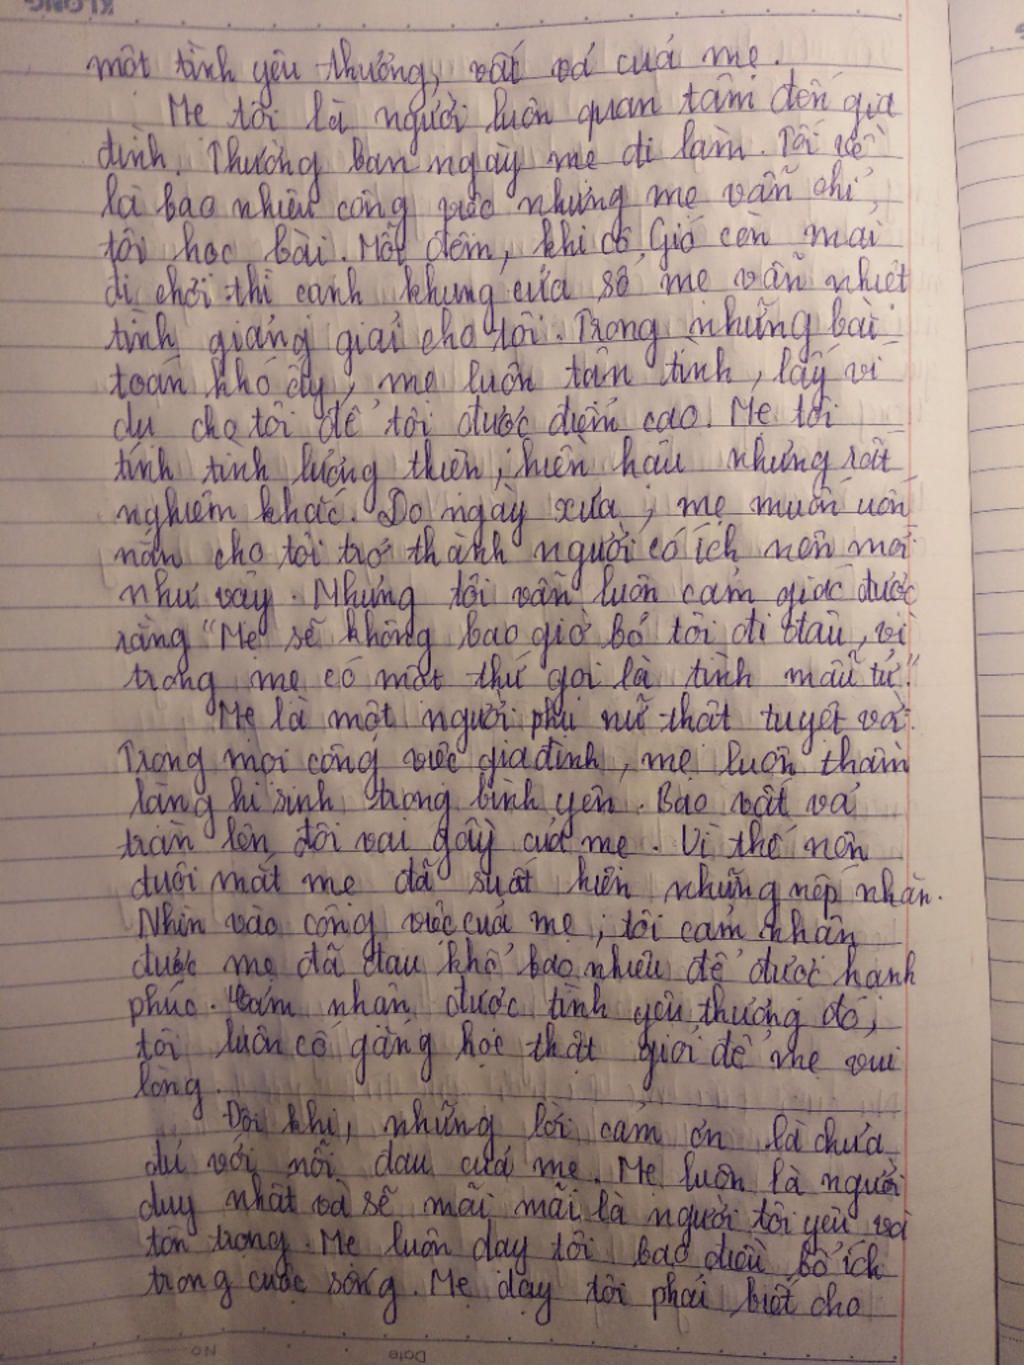 một tình yêu thương, vất vả của mẹ.
Mẹ tôi là người luôn quan tâm đến gia
đình. Thường ban ngày mẹ đi làm. Tối về
là bao nhiêu công việc nhưng mẹ vẫn chỉ
tôi học bài. Mỗi đêm, khi cô Gió còn mải
đi chơi thì cạnh khung cửa sổ mẹ vẫn nhiệt
tình giảng giải cho tôi. Trong những bài
toán khó ấy, mẹ luôn tận tình, lấy ví
dụ cho tôi để tôi được điểm cao. Mẹ tôi
tính tình lương thiện, hiền hậu nhưng rất
nghiêm khắc. Do ngày xưa, mẹ muốn uốn
nắn cho tôi trở thành người có ích nên mới
như vậy. Nhưng tôi vẫn luôn cảm giác được
rằng "Mẹ sẽ không bao giờ bỏ tôi đi đâu, vì
trong mẹ có một thứ gọi là tình mẫu tử."
Mẹ là một người phụ nữ thật tuyệt vời.
Trong mọi công việc gia đình, mẹ luôn thầm
lặng hi sinh trong bình yên. Bao vất vả
tràn lên đôi vai gầy của mẹ. Vì thế nên
dưới mắt mẹ đã suất hiện những nếp nhăn.
Nhìn vào công việc của mẹ, tôi cảm nhận
được mẹ đã đau khổ bao nhiêu để được hạnh
phúc. Cảm nhận được tình yêu thương đó,
tôi luôn cố gắng học thật giỏi để mẹ vui
lòng.
Đôi khi, những lời cảm ơn là chưa
đủ với nỗi đau của mẹ. Mẹ luôn là người
duy nhất và sẽ mãi mãi là người tôi yêu và
tôn trọng. Mẹ luôn dạy tôi bao điều bổ ích
trong cuộc sống. Mẹ dạy tôi phải biết cho
No
Date